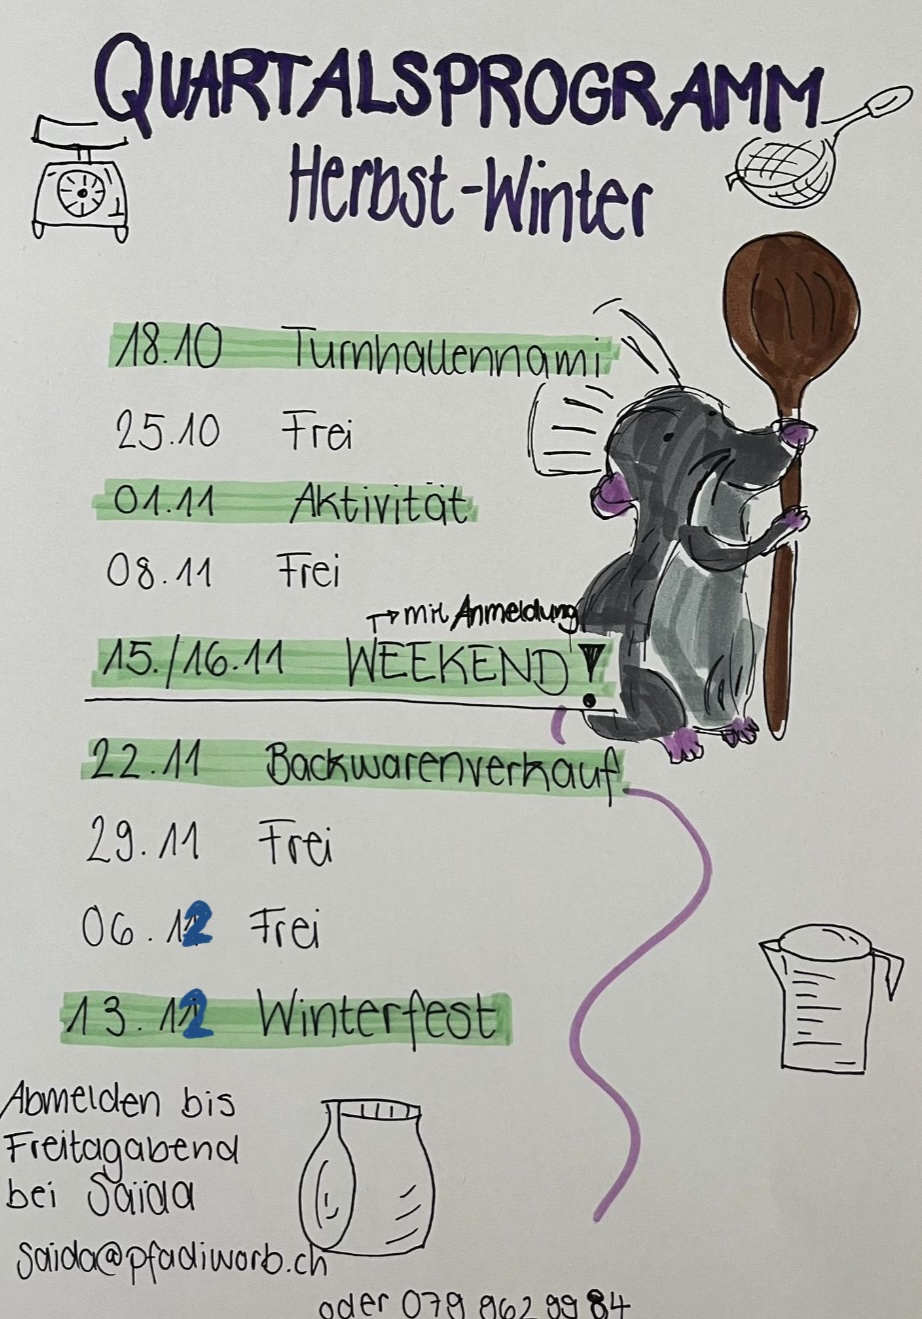 QUARTALSPROGRAMM
Herbst-Winter
18.10 Turnhallennami
25.10 Frei
01.11 Aktivität
08.11 Frei
→ mit Anmeldung
15./16.11 WEEKEND!
22.11 Backwarenverkauf
29.11 Frei
06.12 Frei
13.12 Winterfest
Abmelden bis
Freitagabend
bei Saida
saida@pfadiworb.ch
oder 079 962 99 84